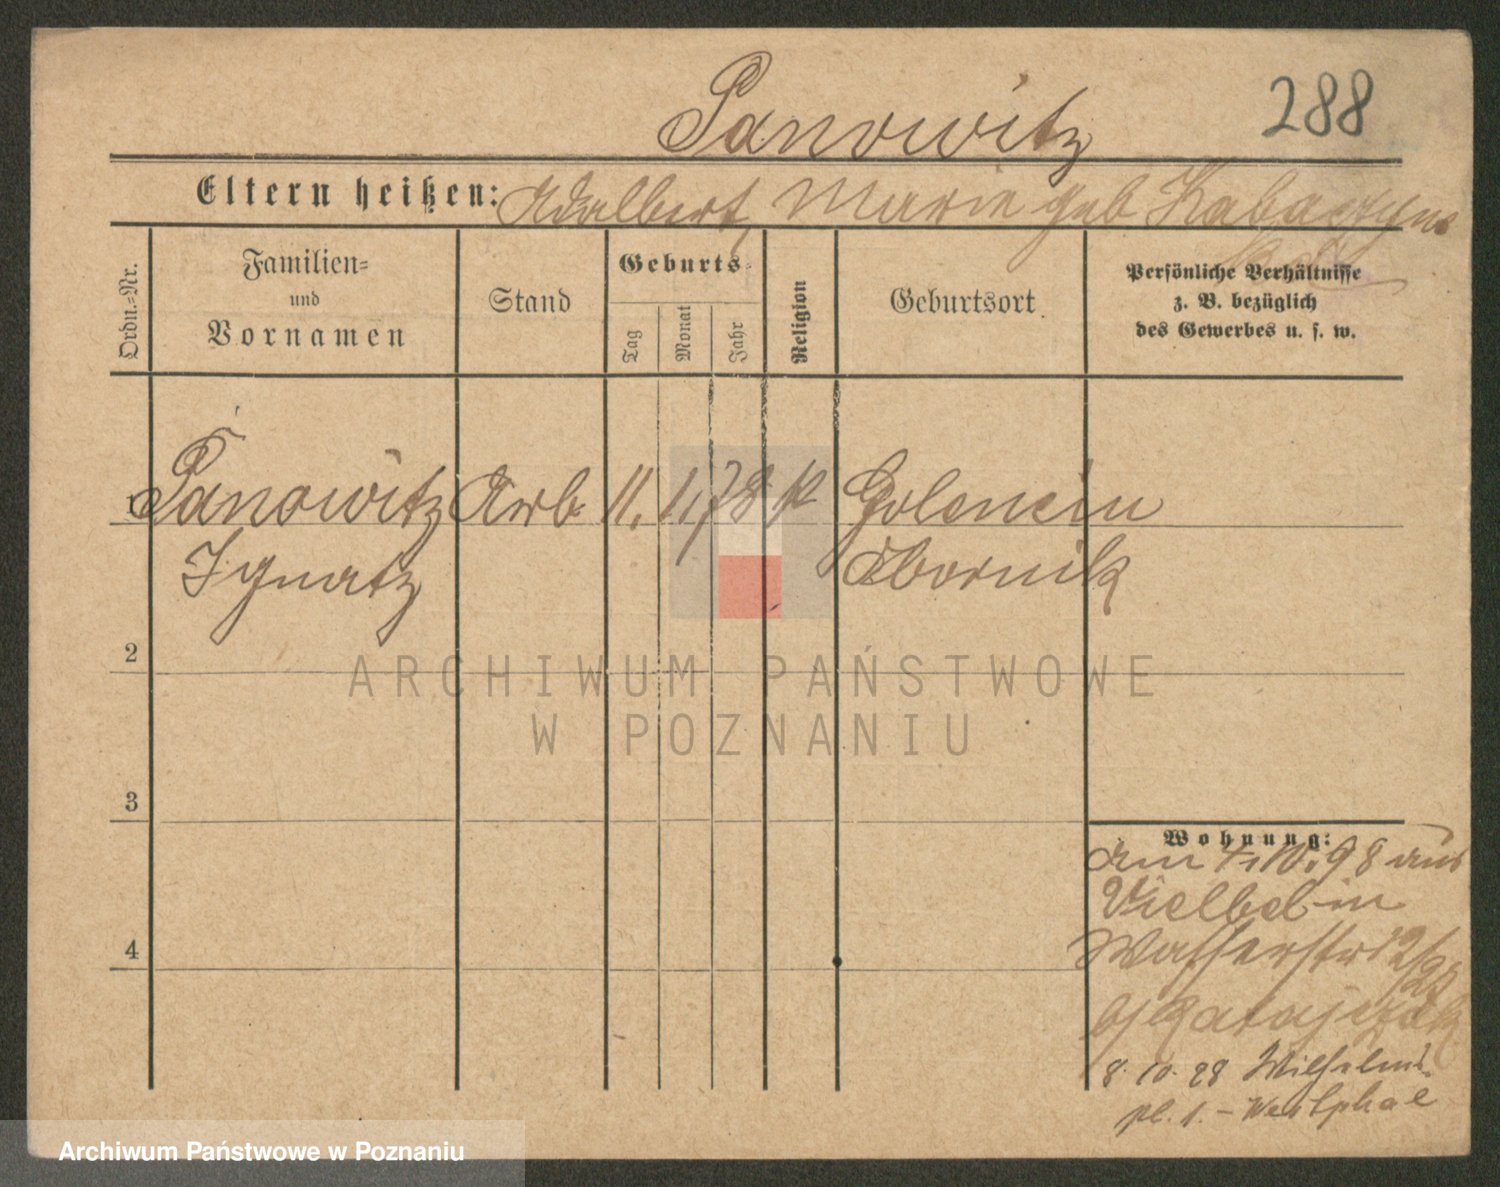 Sanowitz
288
Eltern heißen: Adalbert, Marie geb
Ordn.-Nr.
Familien-
und
Vornamen
Stand
Geburts-
Tag
Monat
Jahr
Religion
Geburtsort
Persönliche Verhältnisse
z. B. bezüglich
des Gewerbes u. s. w.
1 Sanowitz Arb. 11. 1. 78 k Golencin
Ignatz Obornik
2
3
4
Wohnung:
am 4. 10. 98 aus
in
Wasserstr 12/
b/ Ratajczak
8. 10. 98 Wilhelms
pl. 1. - Westphal
ARCHIWUM PAŃSTWOWE
W POZNANIU
Archiwum Państwowe w Poznaniu